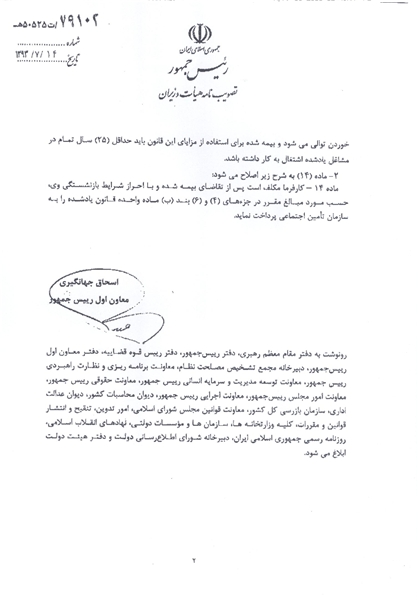 ۷۹۱۰۲/ت۵۰۵۲۵هـ
شماره
۱۳۹۳/۷/۱۴
تاریخ
جمهوری اسلامی ایران
رئیس جمهور
تصویب نامه هیأت وزیران
خوردن توالی می شود و بیمه شده برای استفاده از مزایای این قانون باید حداقل (۲۵) سال تمام در
مشاغل یادشده اشتغال به کار داشته باشد.
۲- ماده (۱۴) به شرح زیر اصلاح می شود:
ماده ۱۴ – کارفرما مکلف است پس از تقاضای بیمه شده و با احراز شرایط بازنشستگی وی،
حسب مورد مبالغ مقرر در جزءهای (۴) و (۶) بند (ب) ماده واحده قانون یادشده را به
سازمان تأمین اجتماعی پرداخت نماید.
اسحاق جهانگیری
معاون اول رییس جمهور
رونوشت به دفتر مقام معظم رهبری، دفتر رییس‌جمهور، دفتر رییس قوه قضاییه، دفتر معاون اول
رییس‌جمهور، دبیرخانه مجمع تشخیص مصلحت نظام، معاونت برنامه ریزی و نظارت راهبردی
رییس‌جمهور، معاونت توسعه مدیریت و سرمایه انسانی رییس جمهور، معاونت حقوقی رییس جمهور،
معاونت امور مجلس رییس‌جمهور، معاونت اجرایی رییس جمهور، دیوان محاسبات کشور، دیوان عدالت
اداری، سازمان بازرسی کل کشور، معاونت قوانین مجلس شورای اسلامی، امور تدوین، تنقیح و انتشار
قوانین و مقررات، کلیه وزارتخانه ها، سازمان ها و مؤسسات دولتی، نهادهای انقلاب اسلامی،
روزنامه رسمی جمهوری اسلامی ایران، دبیرخانه شورای اطلاع‌رسانی دولت و دفتر هیئت دولت
ابلاغ می شود.
۲